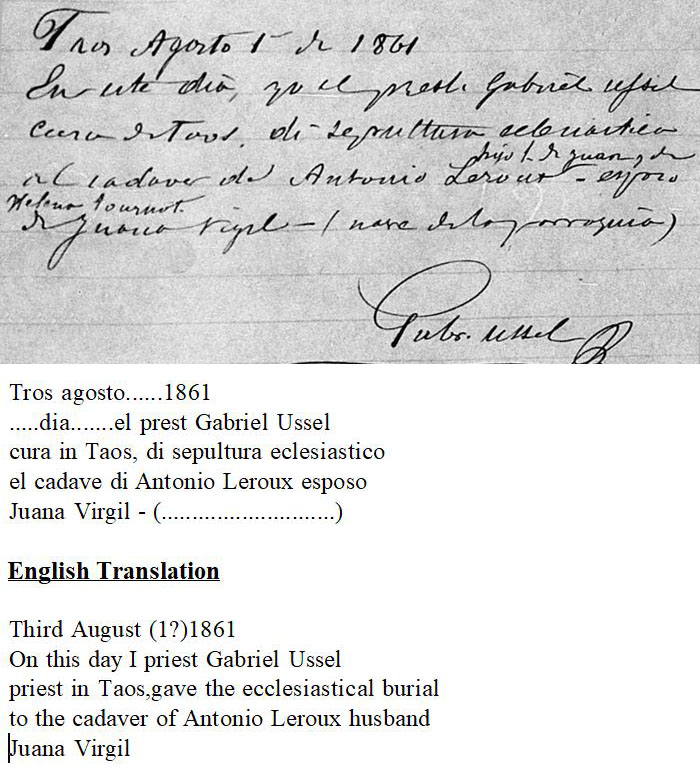 Taos Agosto 1º de 1861
En este dia, yo el presb. Gabriel Ussel
cura de Taos, di sepultura eclesiastica
hijo l. de Juan y de
al cadaver de Antonio Leroux - esposo
Helena
de Juana Vigil - (nave de la parroquia)
Gabr. Ussel
Tros agosto......1861
.....dia.......el prest Gabriel Ussel
cura in Taos, di sepultura eclesiastico
el cadave di Antonio Leroux esposo
Juana Virgil - (............................)
English Translation
Third August (1?)1861
On this day I priest Gabriel Ussel
priest in Taos,gave the ecclesiastical burial
to the cadaver of Antonio Leroux husband
Juana Virgil